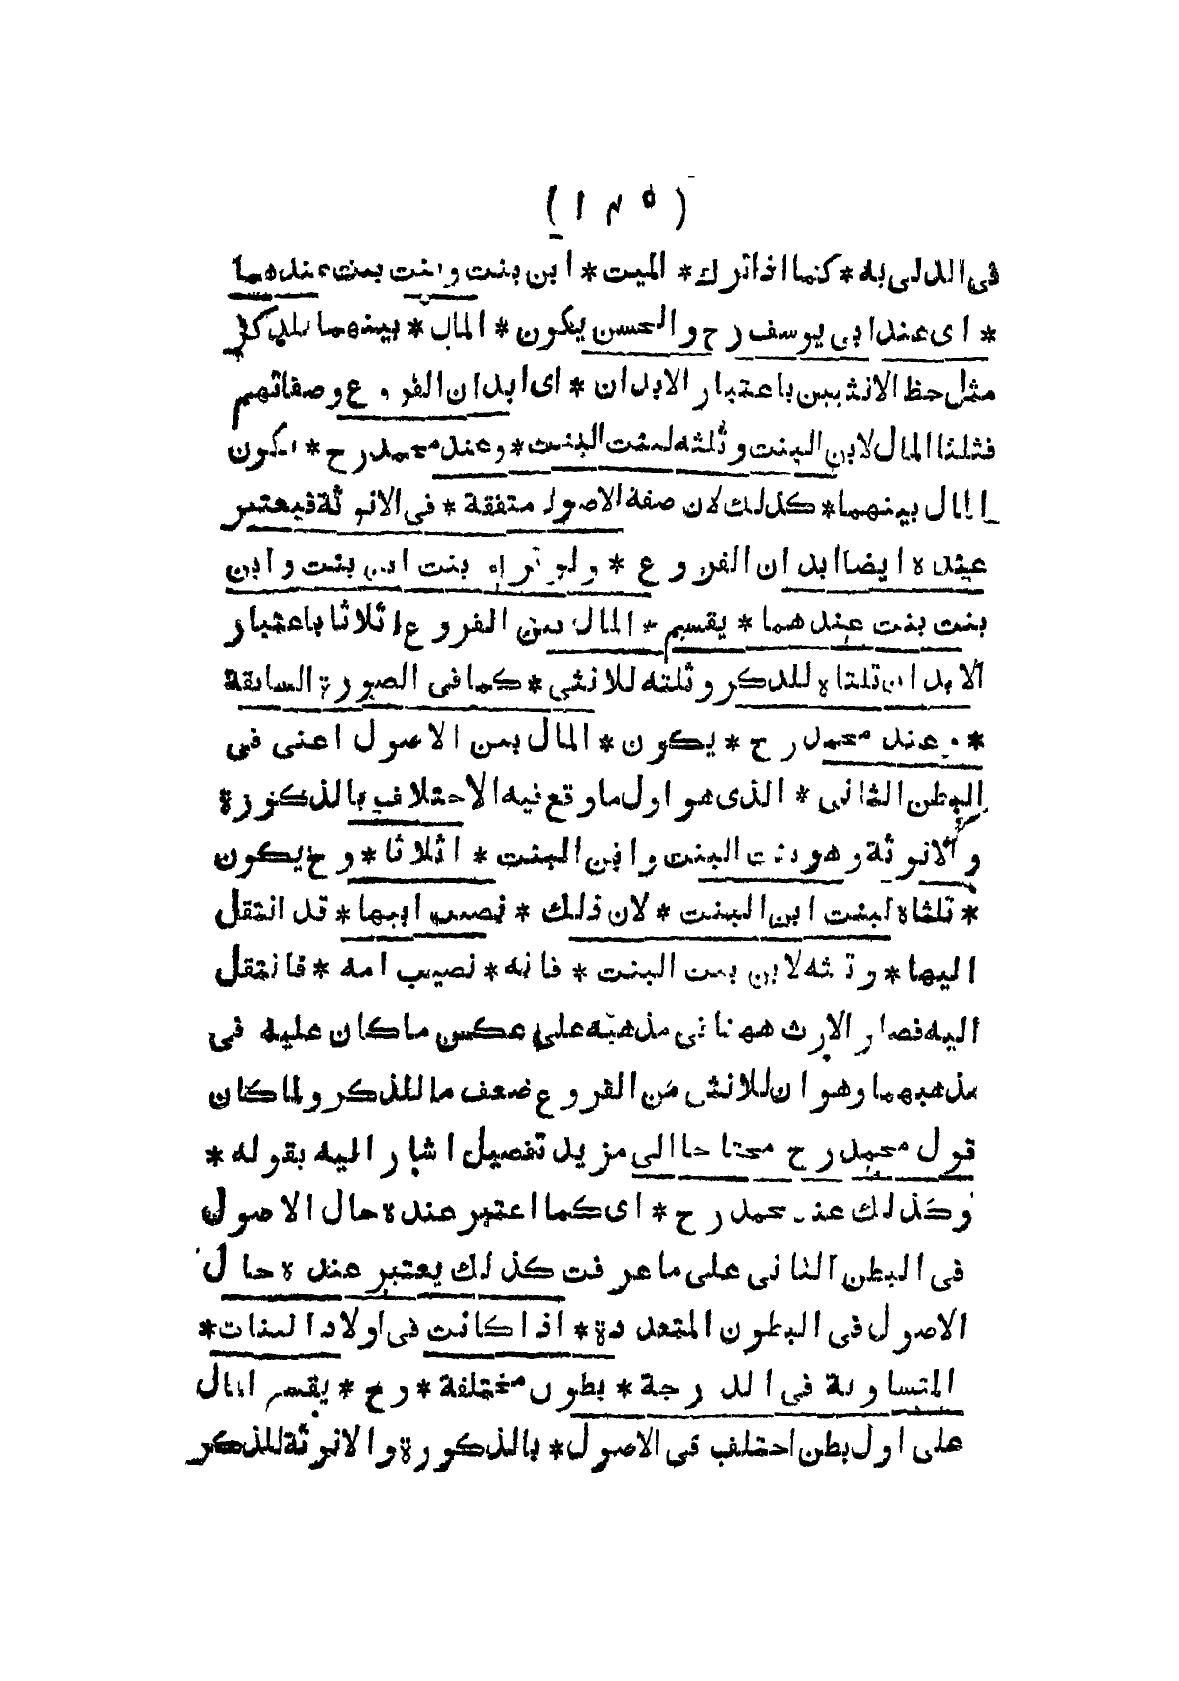 (١٣٥)
فى المدلى به * كما اذا ترك * الميت * ابن بنت وبنت بنت عندهما
* اى عند ابى يوسف رح والحسن يكون * المال * بينهما للذكر
مثل حظ الانثيين باعتبار الابدان * اى ابدان الفروع وصفاتهم
فثلثا المال لابن البنت وثلثه لبنت البنت * وعند محمد رح * يكون
المال بينهما * كذلك لان صفة الاصول متفقة * فى الانوثة فيعتبر
عنده ايضا ابدان الفروع * ولو ترك بنت ابن بنت وابن
بنت بنت عندهما * يقسم * المال بين الفروع اثلاثا باعتبار
الابدان ثلثاه للذكر وثلثه للانثى * كما فى الصورة السابقة
* وعند محمد رح * يكون * المال بين الاصول اعنى فى
البطن الثانى * الذى هو اول ما وقع فيه الاختلاف بالذكورة
والانوثة وهو بنت البنت وابن البنت * اثلاثا * وح يكون
* ثلثاه لبنت ابن البنت * لان ذلك * نصيب ابيها * قد انتقل
اليها * وثلثه لابن بنت البنت * فانه * نصيب امه * فانتقل
اليه فصار الارث ههنا فى مذهبه على عكس ما كان عليه فى
مذهبهما وهو ان للانثى من الفروع ضعف ما للذكر ولما كان
قول محمد رح محتاجا الى مزيد تفصيل اشار اليه بقوله *
وكذلك عند محمد رح * اى كما اعتبر عنده حال الاصول
فى البطن الثانى على ما عرفت كذلك يعتبر عنده حال
الاصول فى البطون المتعددة * اذا كانت فى اولاد البنات *
المتساوية فى الدرجة * بطون مختلفة * وح * يقسم المال
على اول بطن اختلف فى الاصول * بالذكورة والانوثة للذكر